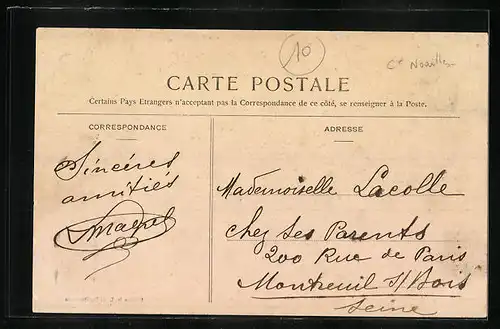 10
CARTE POSTALE
Certains Pays Etrangers n'acceptant pas la Correspondance de ce côté, se renseigner à la Poste.
CORRESPONDANCE
Sincères
amitiés
ADRESSE
Mademoiselle Lacolle
chez ses Parents
200 Rue de Paris
Montreuil s/Bois
Seine